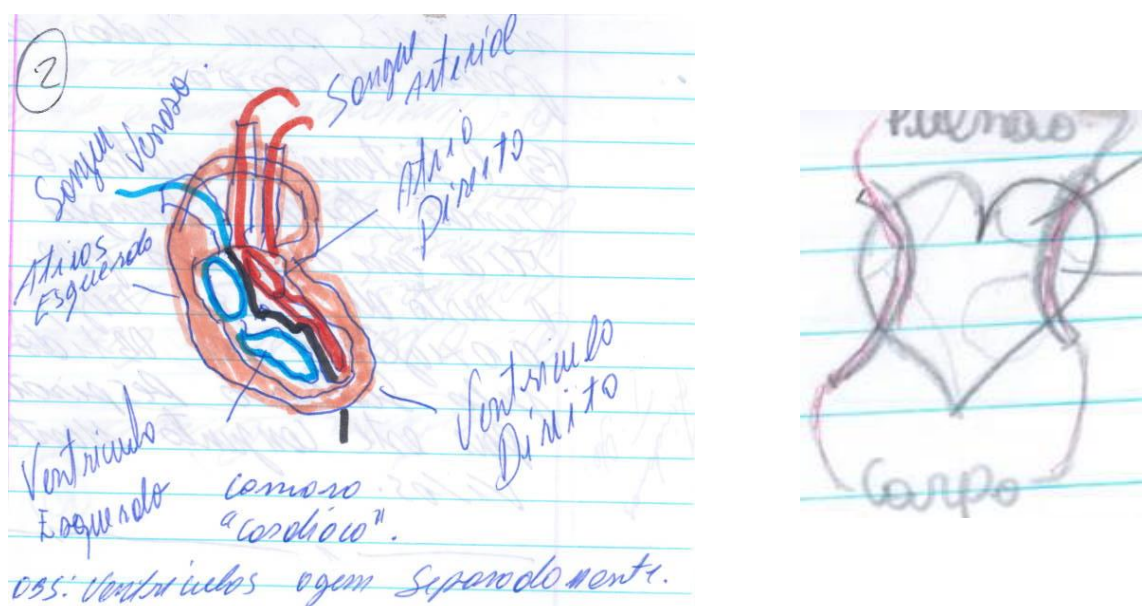 2
Sangue
Venoso.
Sangue
Arterial
Atrio
Direito
Atrios
Esquerdo
Ventriculo
Direito
Ventriculo
Esquerdo
"Cardíaco".
OBS: Ventriculos agem Separadamente.
Pulmão
Corpo